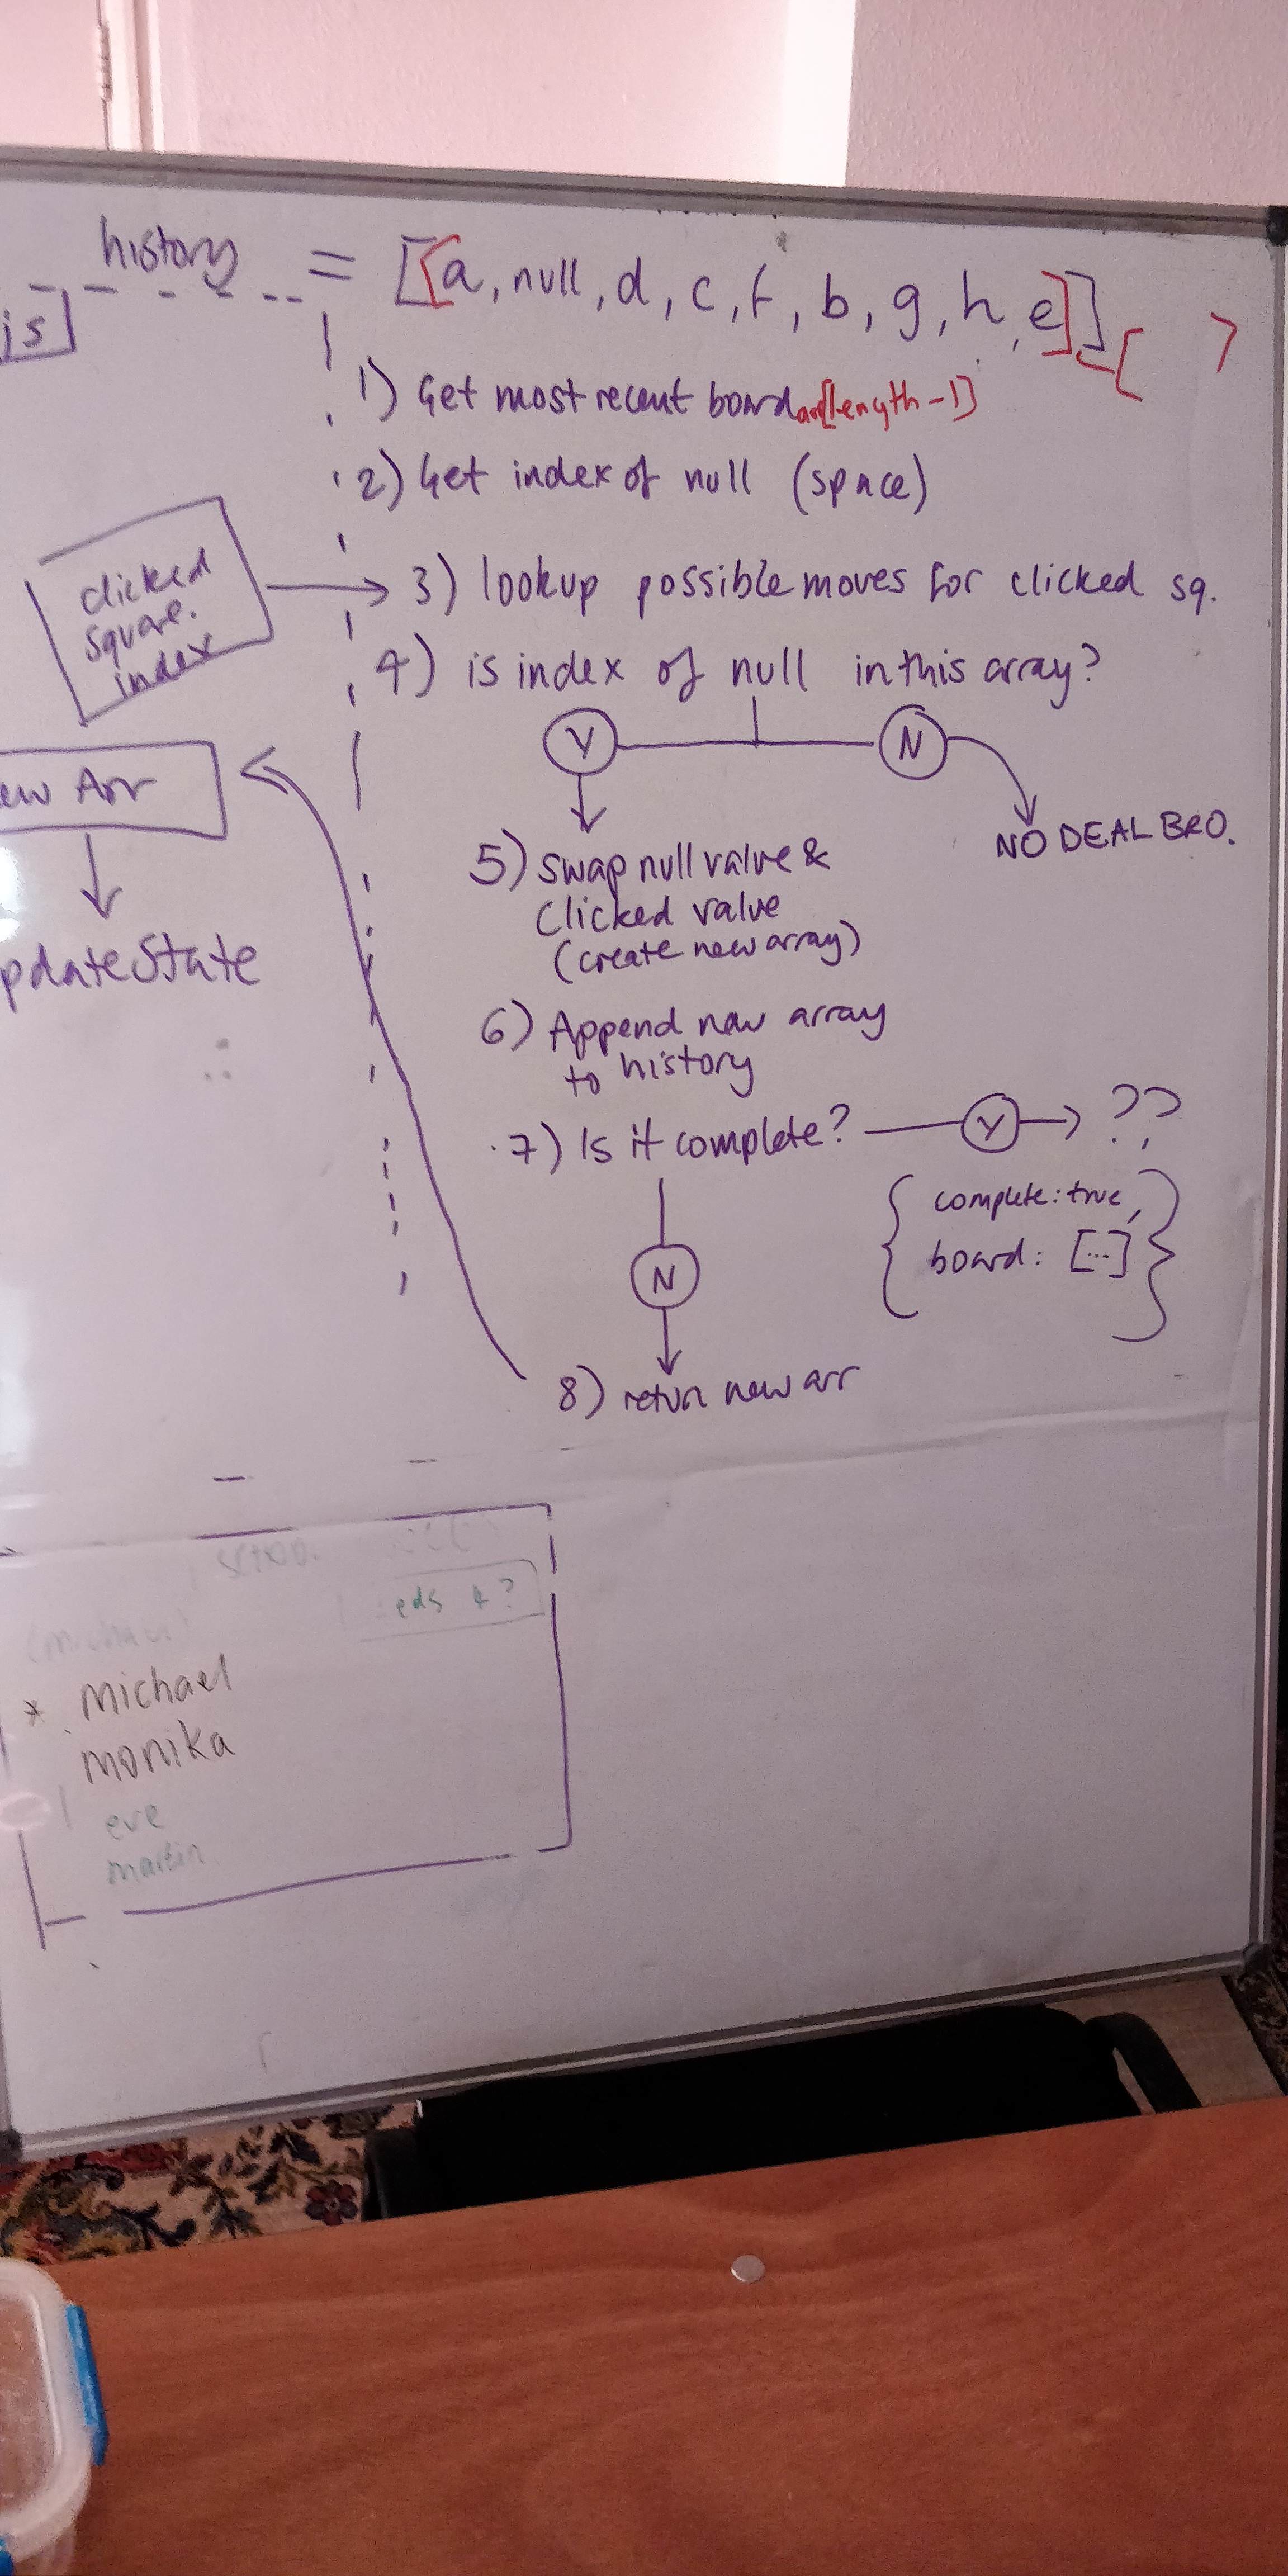 history = [[a, null, d, c, f, b, g, h, e]] [
is]
1) Get most recent board arr[length-1]
2) Get index of null (space)
clicked
square.
index
3) lookup possible moves for clicked sq.
4) is index of null in this array?
Y
N
NO DEAL BRO.
ew Arr
pdate State
5) swap null value &
clicked value
(create new array)
6) Append new array
to history
7) Is it complete? Y ??
{ complete: true,
board: [...] }
N
8) return new arr
eds 4?
(michael)
* michael
monika
eve
martin